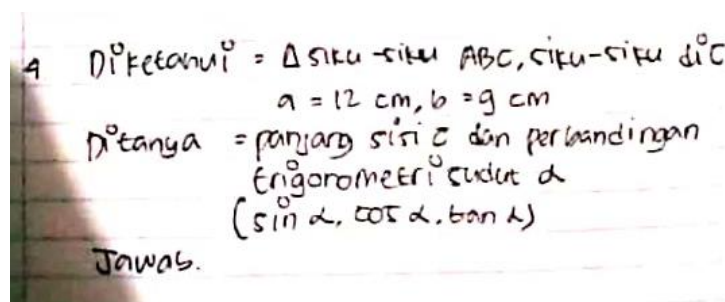 4 Diketahui = Δ siku-siku ABC, siku-siku di C
a = 12 cm, b = 9 cm
Ditanya = panjang sisi c dan perbandingan
trigonometri sudut α
(sin α, cos α, tan α)
Jawab.